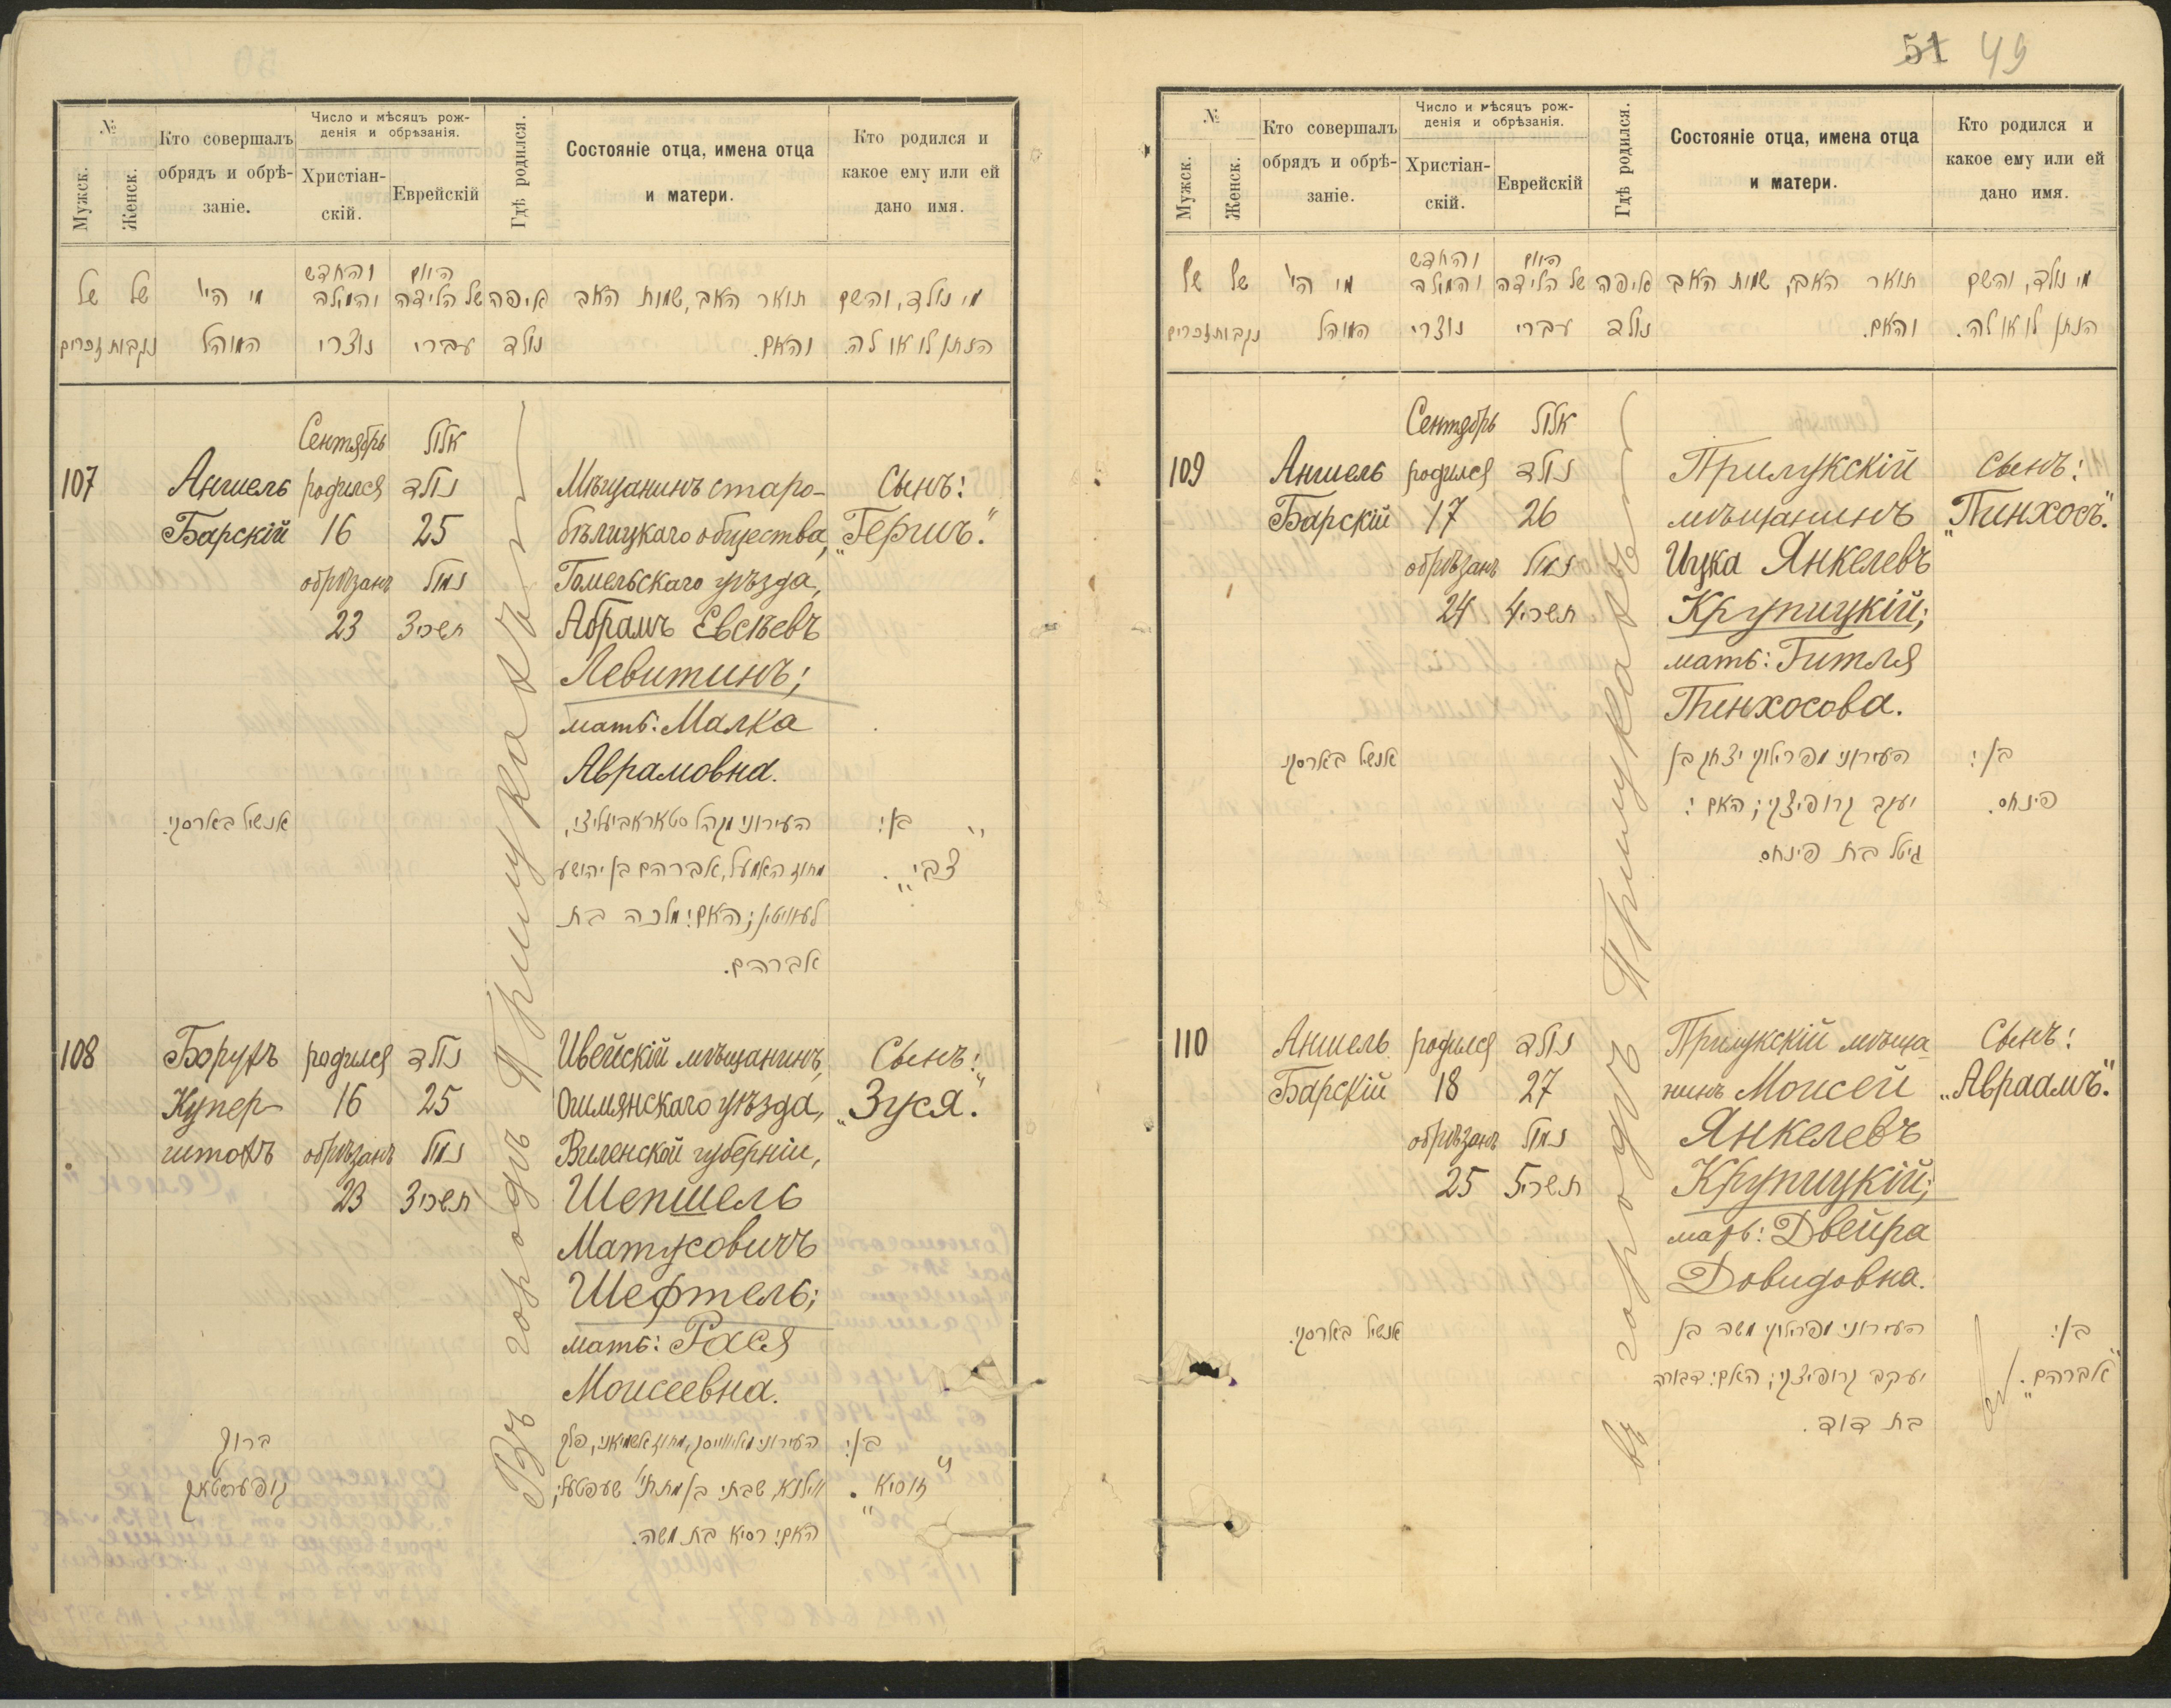 51 49
№
Мужск.
Женск.
Кто совершалъ обрядъ и обрѣ-заніе.
Число и мѣсяцъ рож-денія и обрѣзанія.
Христіан-скій.
Еврейскій
Гдѣ родился.
Состояніе отца, имена отца и матери.
Кто родился и какое ему или ей дано имя.
של של מי הי' והחדש היום
והמולד של הלידה איפה תואר האב, שמות האב מי נולד, והשם
זכרים נקבות המוהל נוצרי עברי נולד והאם. הנתן לו או לה.
Сентябрь אלול
107 Аншель родился נולד Мѣщанинъ старо- Сынъ:
Барскій 16 25 бѣлицкаго общества, „Гершъ".
обрѣзанъ נמול Гомельскаго уѣзда,
23 3 תשרי Абрамъ Евсѣевъ
Левитинъ;
мать: Малка
Аврамовна.
אנשיל בארסקי. העירוני מקהל סטאראביעליצי, בן:
מחוז האמעל, אברהם בן יהושע „צבי".
לעוויטין; האם: מלכה בת
אברהם.
108 Борухъ родился נולד Ивейскій мѣщанинъ, Сынъ:
Купер- 16 25 Ошмянскаго уѣзда, „Зуся."
штохъ обрѣзанъ נמול Виленской губерніи,
23 3 תשרי Шепшель
Матусовичъ
Шефтель;
мать: Рася
Моисеевна.
ברוך העירוני מאיווייסק, מחוז אשמיאני, פלך בן:
קופערשטאך ווילנא, שבתי בן מתתי' שעפטעל; „זוסיא".
האם: רסיא בת משה.
Въ городѣ Прилукахъ
№
Мужск.
Женск.
Кто совершалъ обрядъ и обрѣ-заніе.
Число и мѣсяцъ рож-денія и обрѣзанія.
Христіан-скій.
Еврейскій
Гдѣ родился.
Состояніе отца, имена отца и матери.
Кто родился и какое ему или ей дано имя.
של של מי הי' והחדש היום
והמולד של הלידה איפה תואר האב, שמות האב מי נולד, והשם
זכרים נקבות המוהל נוצרי עברי נולד והאם. הנתן לו או לה.
Сентябрь אלול
109 Аншель родился נולד Прилукскій Сынъ:
Барскій 17 26 мѣщанинъ „Пинхосъ".
обрѣзанъ נמול Ицка Янкелевъ
24 4 תשרי Крупицкій;
мать: Гитля
Пинхосова.
אנשיל בארסקי. העירוני מפרילוקי יצחק בן בן:
יעקב קרופיצקי; האם: פינחס.
גיטל בת פינחס.
110 Аншель родился נולד Прилукскій мѣща- Сынъ:
Барскій 18 27 нинъ Моисей „Авраамъ".
обрѣзанъ נמול Янкелевъ
25 5 תשרי Крупицкій;
мать: Двейра
Довидовна.
אנשיל בארסקי. העירוני מפרילוקי משה בן בן:
יעקב קרופיצקי; האם: דבורה „אברהם".
בת דוד.
Въ городѣ Прилукахъ